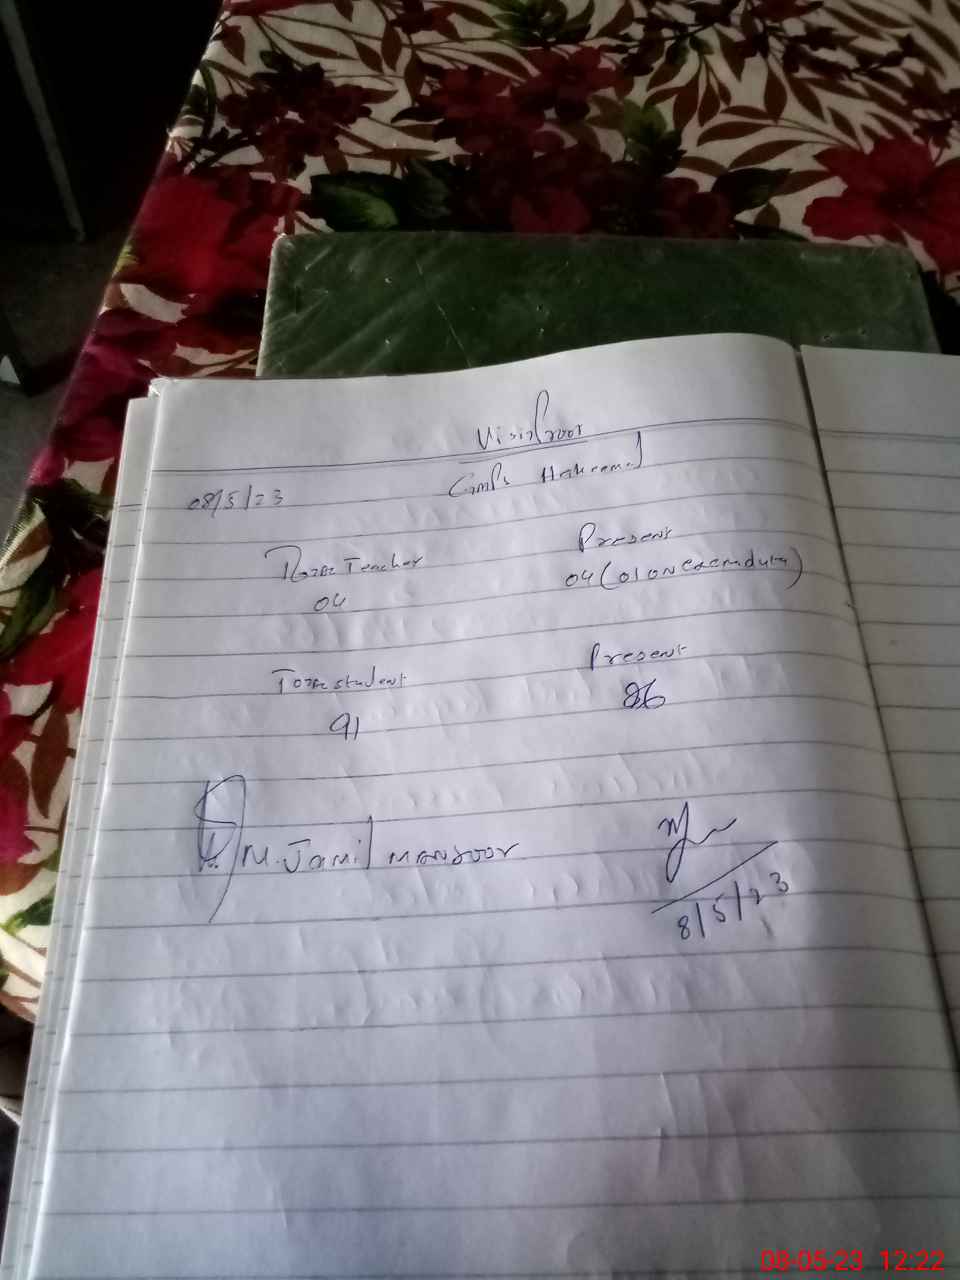 08/5/23
GMPS
Total Teacher Present
04 04 (01 on exam duty)
Total student Present
91 86
M. Jamil mansoor
8/5/23
08-05-23 12:22